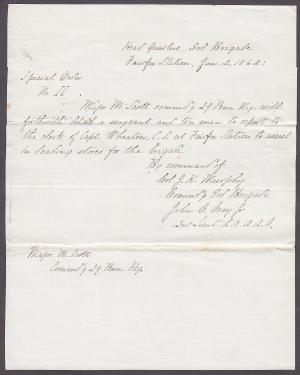 Head Quarters, 3rd Brigade
Fairfax Station, Jan. 2, 1862:
Special Order
No II.
Major M. Scott command'g 29 Penn Reg. will
forthwith detail a sergeant and ten men to report to
the clerk of Capt. Wheaton, C.S. at Fairfax Station to assist
in loading stores for the brigade.
By command of
Col J. K. Murphy
Command'g 3rd Brigade
John C.
2nd Lieut A.A.A.G.
Major M. Scott
Command'g 29 Penn. Reg.